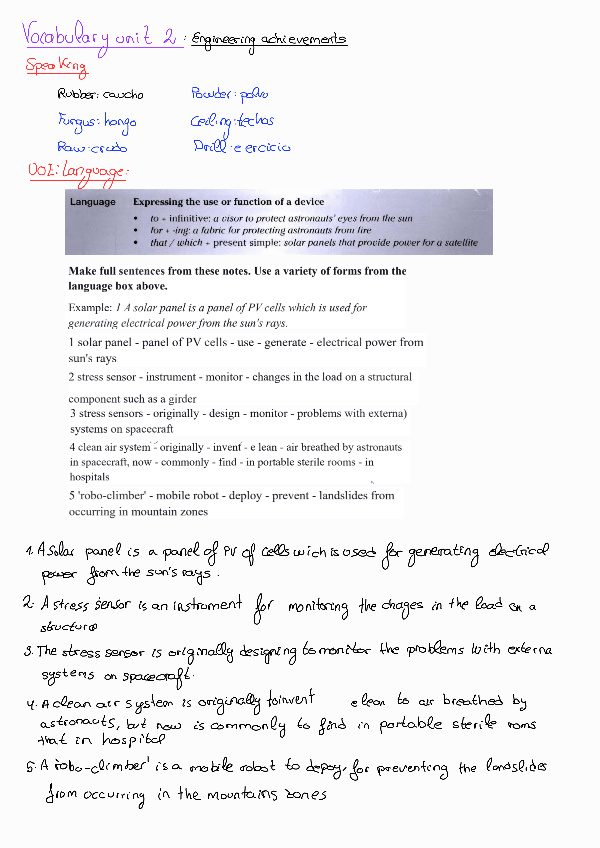 Vocabulary unit 2 : Engineering achievements
Speaking
Rubber: caucho Powder: polvo
Fungus: hongo Ceiling: techos
Raw: crudo Drill: e ercicio
UOE: Language:
Language Expressing the use or function of a device
• to + infinitive: a visor to protect astronauts' eyes from the sun
• for + -ing: a fabric for protecting astronauts from fire
• that / which + present simple: solar panels that provide power for a satellite
Make full sentences from these notes. Use a variety of forms from the
language box above.
Example: 1 A solar panel is a panel of PV cells which is used for
generating electrical power from the sun's rays.
1 solar panel - panel of PV cells - use - generate - electrical power from
sun's rays
2 stress sensor - instrument - monitor - changes in the load on a structural
component such as a girder
3 stress sensors - originally - design - monitor - problems with externa)
systems on spacecraft
4 clean air system - originally - invent - e lean - air breathed by astronauts
in spacecraft, now - commonly - find - in portable sterile rooms - in
hospitals
5 'robo-climber' - mobile robot - deploy - prevent - landslides from
occurring in mountain zones
1. A Solar panel is a panel of PV of cells which is used for generating electrical
power from the sun's rays.
2. A stress sensor is an instrument for monitoring the chages in the load on a
structure
3. The stress sensor is originally designing to monitor the problems with externa
systems on spacecraft.
4. A clean air system is originally to invent e lean to air breathed by
astronauts, but now is commonly to find in portable sterile roms
that in hospital
5. A robo-climber' is a mobile robot to depoy, for preventing the landslides
from occurring in the mountains zones